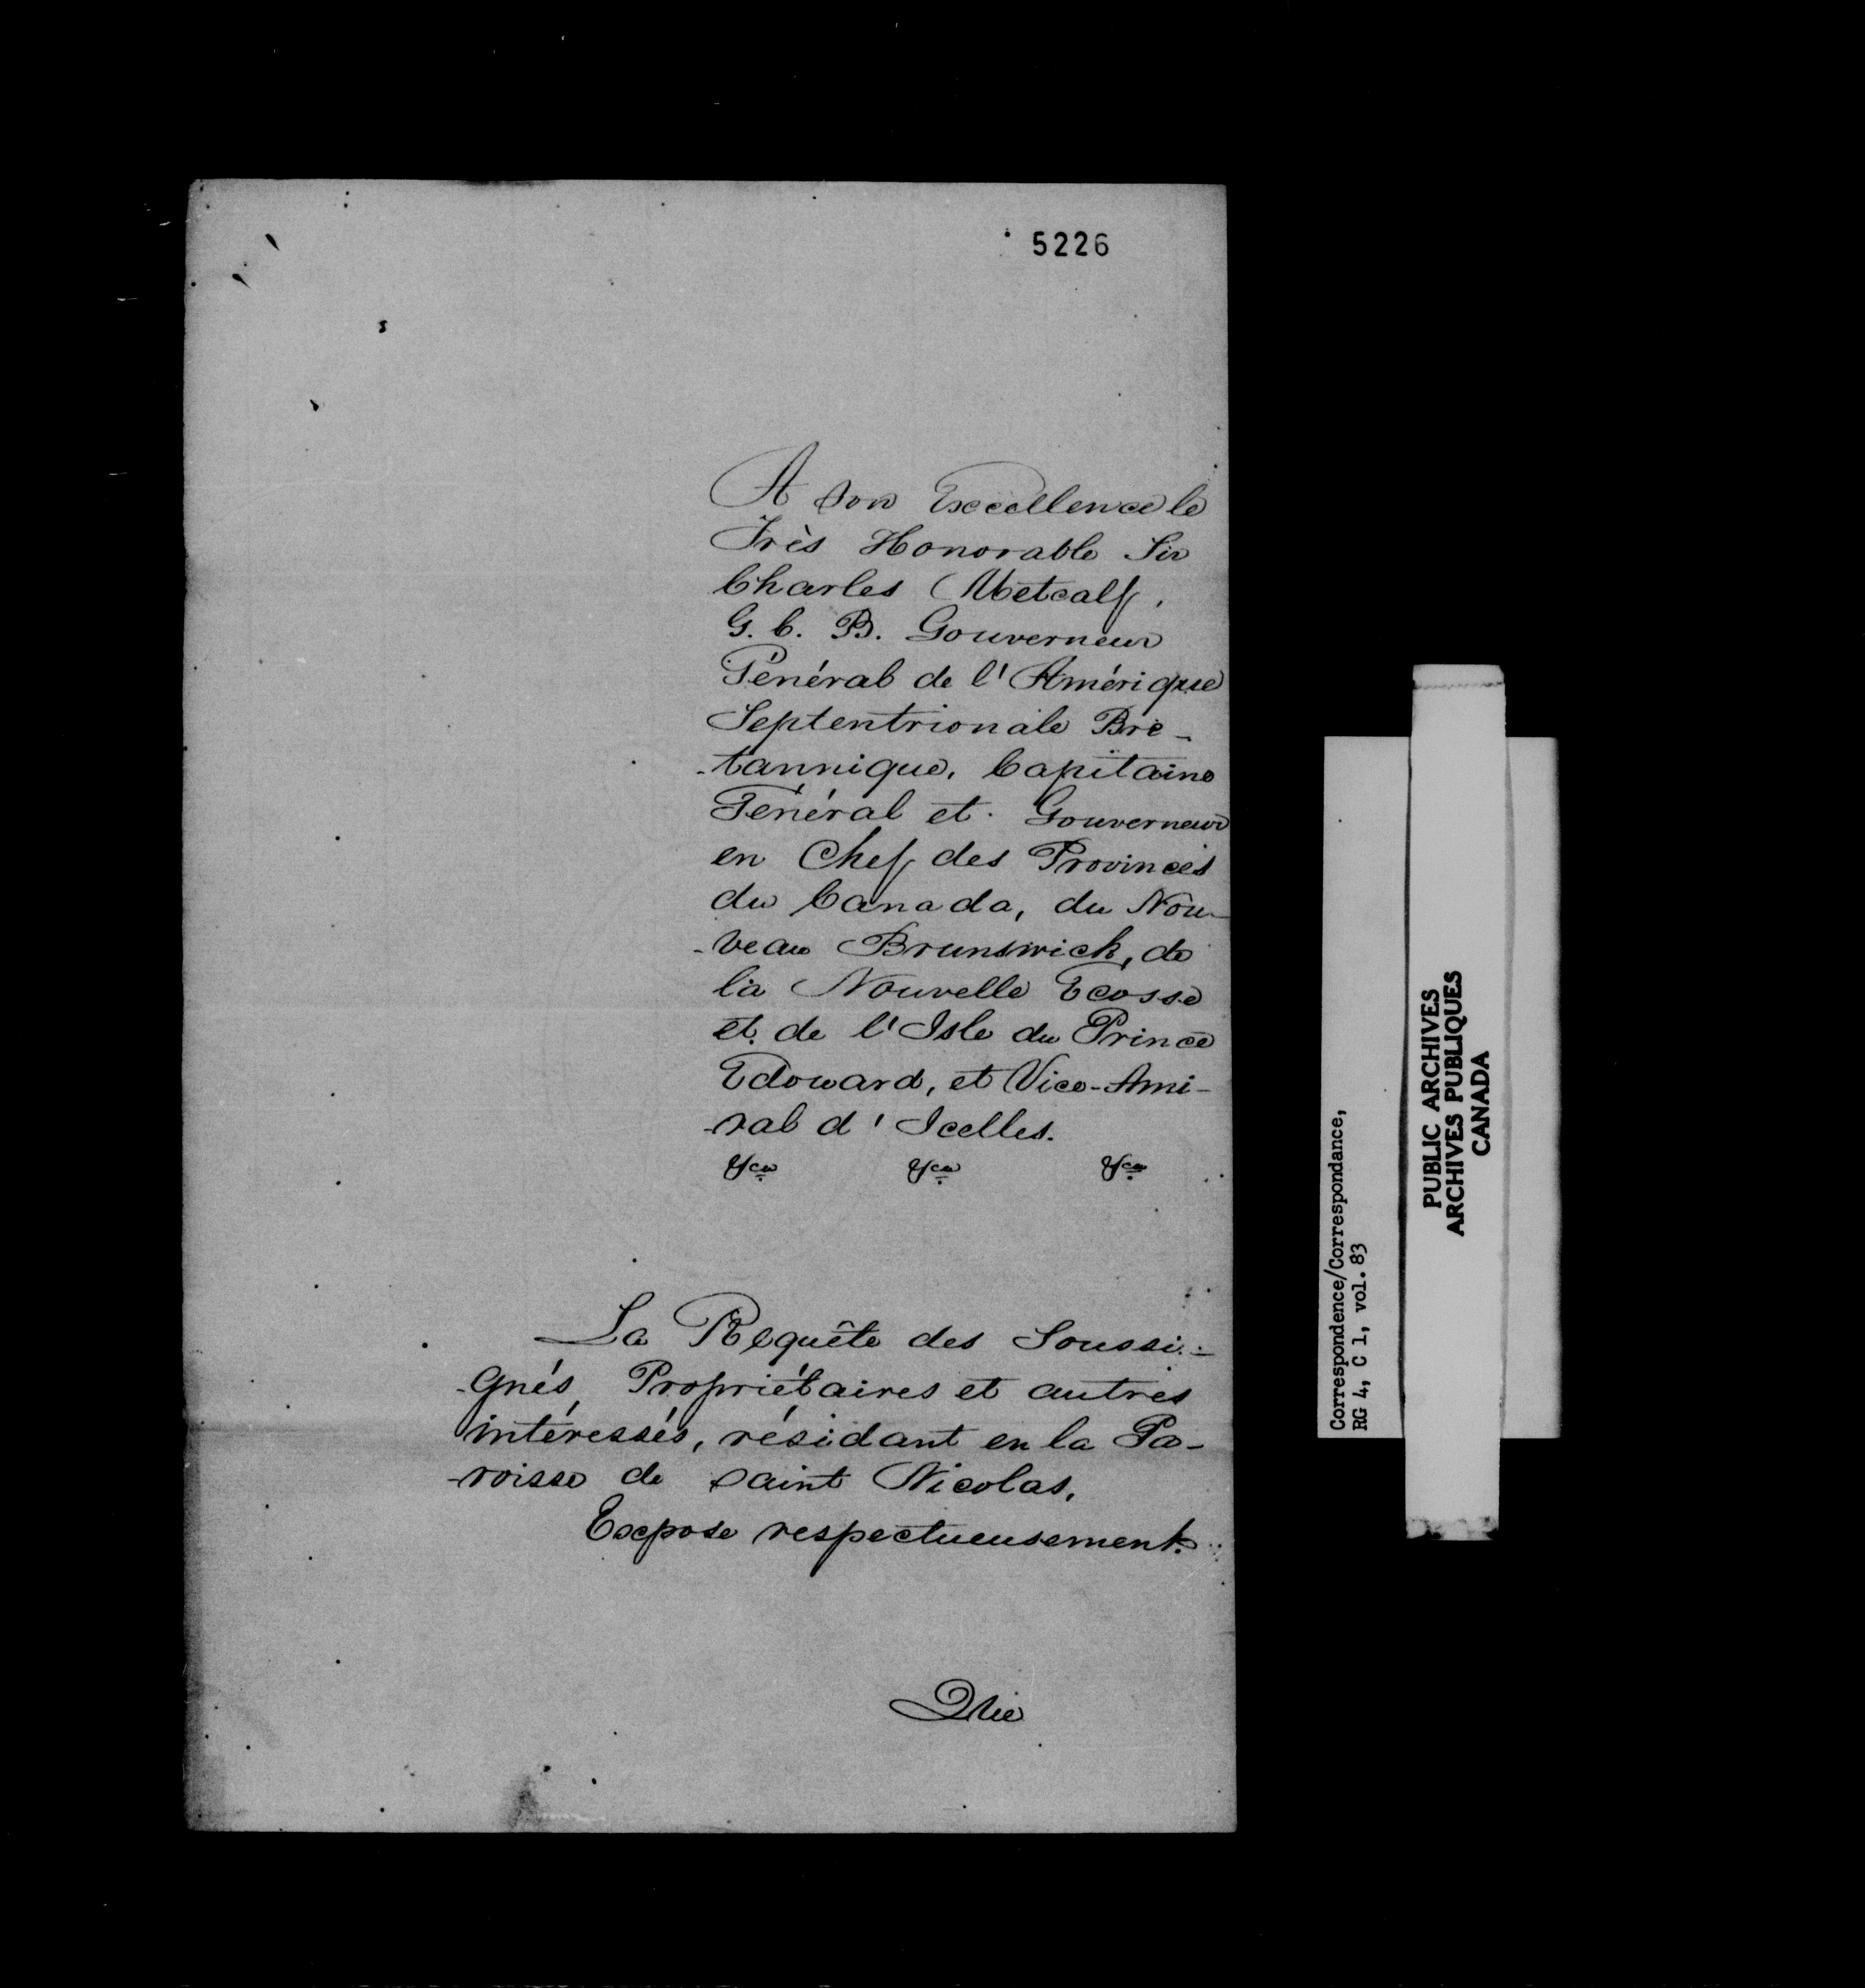 5226
A Son Excellence le
Très Honorable Sir
Charles Metcalf,
G. C. B. Gouverneur
Général de l'Amérique
Septentrionale Bre-
-tannique, Capitaine
Général et Gouverneur
en Chef des Provinces
du Canada, du Nou-
-veau Brunswick, de
la Nouvelle Ecosse
et de l'Isle du Prince
Edouard, et Vice-Ami-
-ral d'Icelles.
&ca &ca &ca
La Requête des Soussi-
-gnés, Propriétaires et autres
intéressés, résidant en la Pa-
-roisse de Saint Nicolas,
Expose respectueusement.
Que
Correspondence/Correspondance,
RG 4, C 1, vol. 83
PUBLIC ARCHIVES
ARCHIVES PUBLIQUES
CANADA